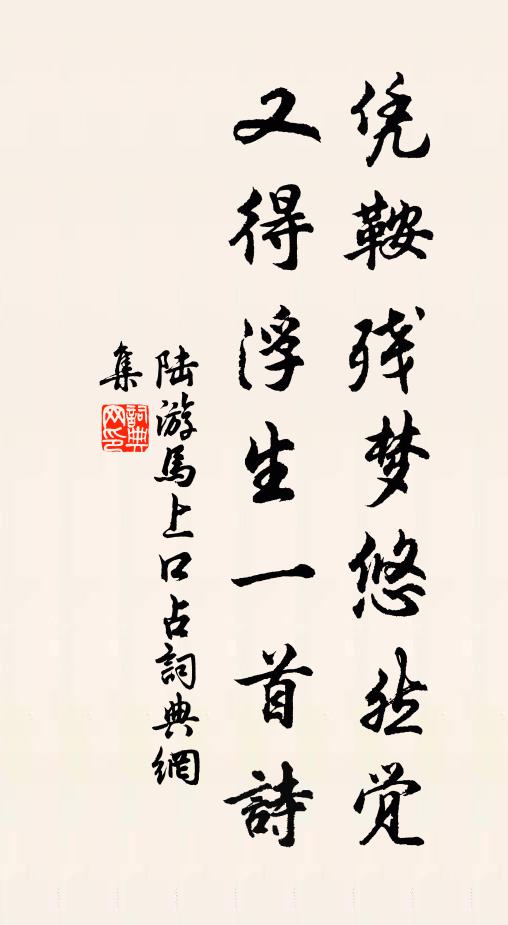 凭鞍残梦悠然觉
又得浮生一首詩
陆游馬上口占詞典網
集
詞典网印